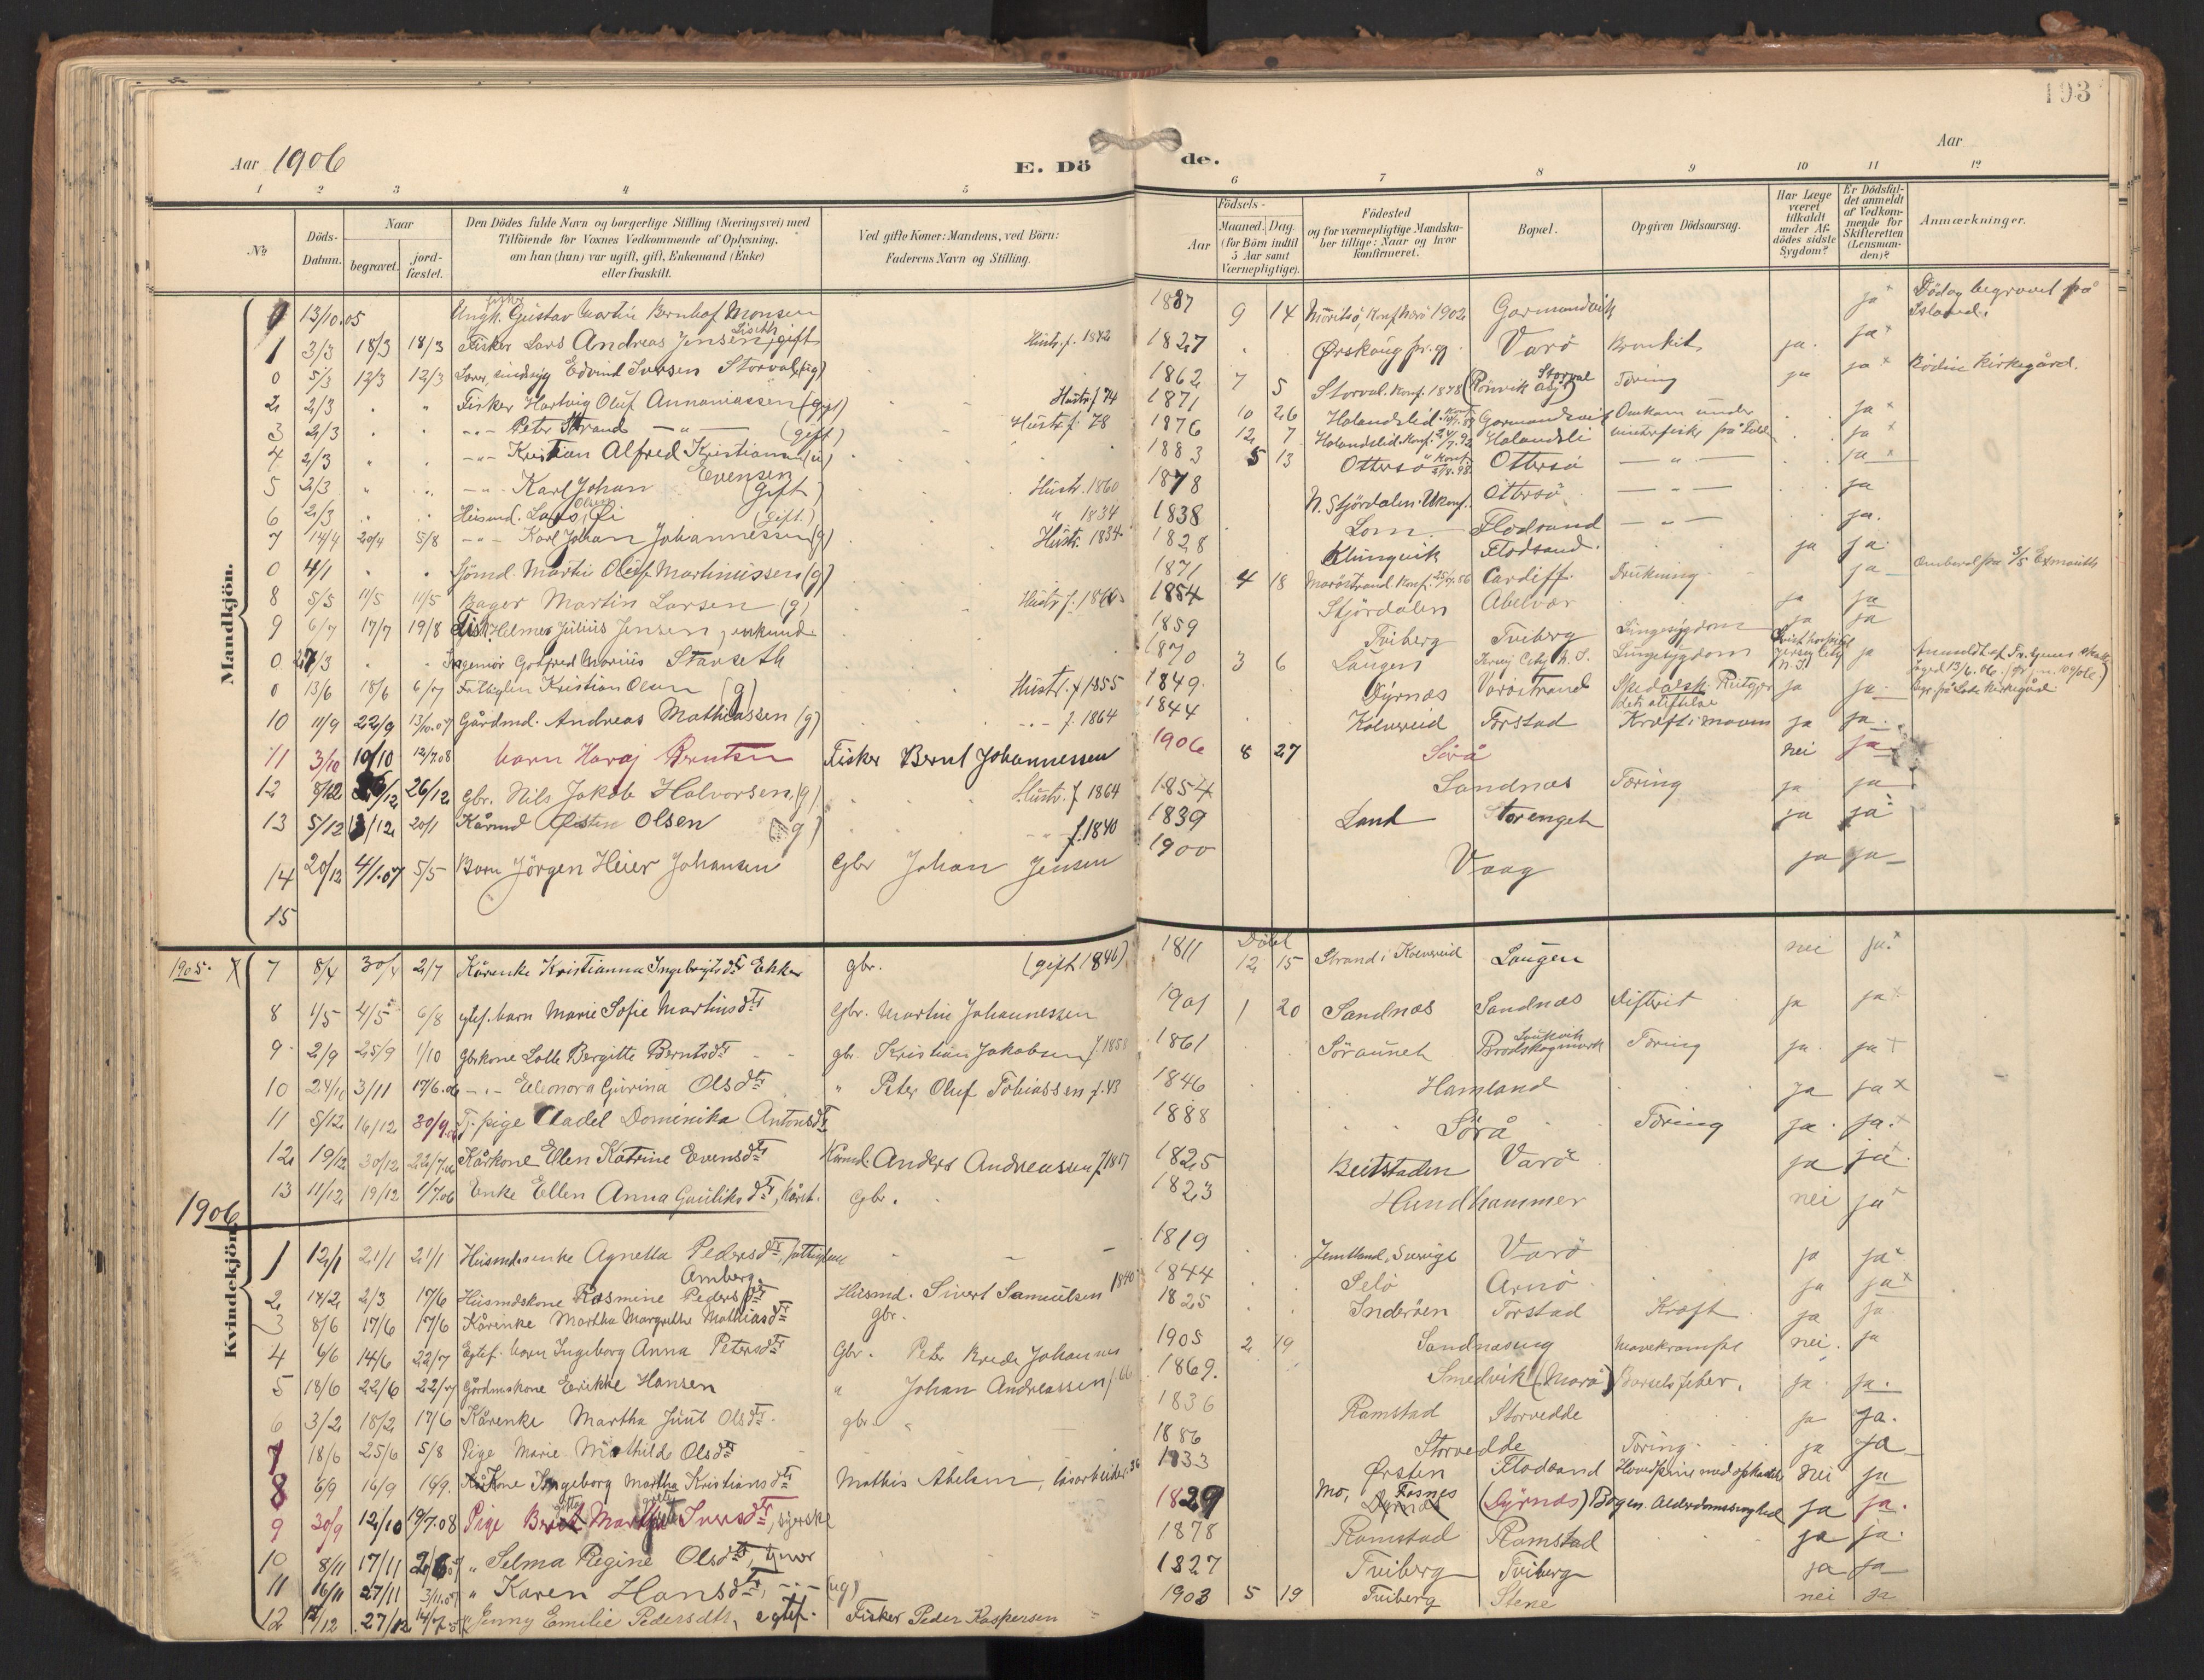 193
Aar 1906
E. Döde.
Aar
1 2 3 4 5 6 7 8 9 10 11 12
No
Döds-Datum.
Naar
begravet.
jord-fæstet.
Den Dödes fulde Navn og borgerlige Stilling (Næringsvei) med Tilföiende for Voxnes Vedkommende af Oplysning, om han (hun) var ugift, gift, Enkemand (Enke) eller fraskilt.
Ved gifte Koner: Mandens, ved Börn: Faderens Navn og Stilling.
Födsels-
Aar
Maaned. Dag.
(for Börn indtil 5 Aar samt Værnepligtige).
Födested og for værnepligtige Mandskaber tillige: Naar og hvor konfirmeret.
Bopæl.
Opgiven Dödsaarsag.
Har Læge været tilkaldt under Afdödes sidste Sygdom?
Er Dödsfaldet anmeldt af Vedkommende for Skifteretten (Lensmanden)?
Anmærkninger.
Mandkjön.
13/10.05 Ungk. Gustav Martin Bernhof Monsen 1887 9 14 Garmandvik ja Död og begravet på Island.
1 3/3 18/3 18/3 Fisker Lars Andreas Jensen Liseth, gift Hustr. f. 1842 1827 Ørskoug Varö Bronkit ja. ja
0 5/3 12/3 12/3 Edvind Iversen Storval (ug) 1862 7 5 Storval. Konf. 1878 Tæring ja ja Bodin Kirkegård.
2 2/3 " " Fisker Hartvig Oluf Annaniassen (gift) Hustr. f. 74 1871 10 26 Holandslid. Garmandsvik Omkom under ja
3 2/3 " " -"- Peter Strand -"- (gift) Hustr. f. 78 1876 12 7 Holandslid. Konf. Holandsli vinterfiske på ja
4 2/3 " " -"- Kristian Alfred Kristiansen (u) 1883 5 13 Ottersö Ottersö -"- ja
5 2/3 " " -"- Karl Johan Evensen (gift) Hustr. 1860 1878 N. Stjördalen. Ottersö -"- ja
6 2/3 Husmd. Lars (gift.) " 1834 1838 Lom. Flodsand -"- ja.
7 14/4 20/4 5/8 -"- Karl Johan Johannessen (g) Hustr. 1834 1828 Klungvik Flodsand. ja ja
0 4/1 " " Sömd. Martin Oluf Martinussen (g) 1871 4 18 Cardiff. Drukning ja
8 5/5 11/5 11/5 Bager Martin Larsen (g) 1854 Stjördalen Abelvær ja ja
9 6/7 17/7 19/8 Fisk. Helmer Julius Jensen, enkemd 1859 Tviberg Tviberg Lungesygdom ja ja
0 27/3 Ingeniør Gotfred Marius Starseth 1870 3 6 Laugen Jersey City N. J. Lungesygdom ja
0 13/6 18/6 6/7 Fattiglem Kristian Olsen (g) Hustr. f. 1855 1849 Dyrnæs Varöstrand ja ja
10 11/9 22/9 13/10.07 Gårdmd. Andreas Mathiassen (g) -"- f. 1864 1844 Kolvereid Forstad Kræft i maven ja ja
11 3/10 10/10 12/7.08 barn Haraj Berntsen Fisker Bernt Johannessen 1906 8 27 Sörå nei ja
12 8/12 26/12 gbr. Nils Jakob Halvorsen (g) Hustr. f. 1864 1854 Sandnæs Tæring ja ja
13 5/12 20/1 Kårmd Østen Olsen (g) -"- f. 1840 1839 Land Storengeh ja ja
14 20/12 4/1.07 5/5 Barn Jörgen Heier Johansen Gbr Johan Jensen 1900 Vaag ja ja
15
Kvindekjön.
1905. 7 8/4 30/4 2/7 Kårenke Kristianna Ingebrigtsdtr Ekker gbr. (gift 1846) 1811 Döbt 12 15 Strand i Kolvereid Laugen nei ja.
8 1/5 4/5 6/8 egtef. barn Marie Sofie Martinsdtr Gbr. Martin Johannessen 1901 1 20 Sandnæs Sandnæs Difterit ja ja
9 2/9 25/9 1/10 Gbrkone Lotte Bergitte Berntsdtr gbr. Kristian Jakobsen f. 1858 1861 Söraunet Tæring ja ja
10 24/10 3/11 17/6.06 -"- Eleonora Gurina Olsdtr " Peter Oluf Tobiassen f. 43 1846 Hamland ja ja
11 5/12 16/12 30/9.06 Tj. pige Aadel Dominika Antonsdtr 1888 Sörå Tæring ja ja.
12 19/12 30/12 22/7.06 Kårkone Ellen Katrine Evensdtr Kårmd. Anders Andreassen f. 1817 1825 Beitstaden Varö ja ja
13 11/12 19/12 1/7.06 Enke Ellen Anna Gauliksdtr, kårst. Gbr. 1823 Hundhammer nei ja
1906
1 12/1 21/1 21/1 Husmdsenke Agnetta Pedersdtr, fattiglem 1819 Jemtland, Sverige Varö ja ja
2 14/2 2/3 17/6 Husmdskone Rasmine Pedersdtr Arnberg Husmd. Sivert Samuelsen 1840 1844 Selö Arnö ja ja
3 8/6 17/6 17/6 Kårenke Martha Margrethe Mathiasdtr Gbr. 1825 Inderöen Forstad Kræft ja ja
4 6/6 14/6 22/7 Egtef. barn Ingeborg Anna Petersdtr Gbr. Peter Brede Johannes 1905 2 19 Sandnæsung Mavekrampe nei. ja
5 18/6 22/6 22/7 Gårdmskone Eerikke Hansen " Johan Andreassen f. 66 1869. Smedvik (Marø) Barselsfeber. ja ja.
6 3/2 18/2 17/6 Kårenke Martha Juul Olsdtr. gbr. " 1836 Ramstad Storvedde ja ja.
7 18/6 25/6 5/8 Pige Marie Mathilde Olsdtr 1886 Storvedde Tæring ja ja
8 6/9 16/9 16/9. Kårkone Ingeborg Martha Kristiansdtr Mathis Abelsen, løsarbeider. 36 1833 Ørsten Flodsand nei ja
9 30/9 12/10 19/7.08 Pige Iversdtr, syerske 1829 Mo, Fosnes (Dyrnæs) Bogen Alderdomssvaghed ja ja.
10 8/11 17/11 " Selma Regine Olsdtr, 1878 Ramstad Ramstad ja ja
11 16/11 27/11 " Karen Hansdtr, -"- (ug) 1827 Tviberg Tviberg ja ja
12 12/12 27/12 Jenny Emilie Pedersdtr, egtef. Fisker Peder Kaspersen 1903 5 19 Tviberg Stene nei ja